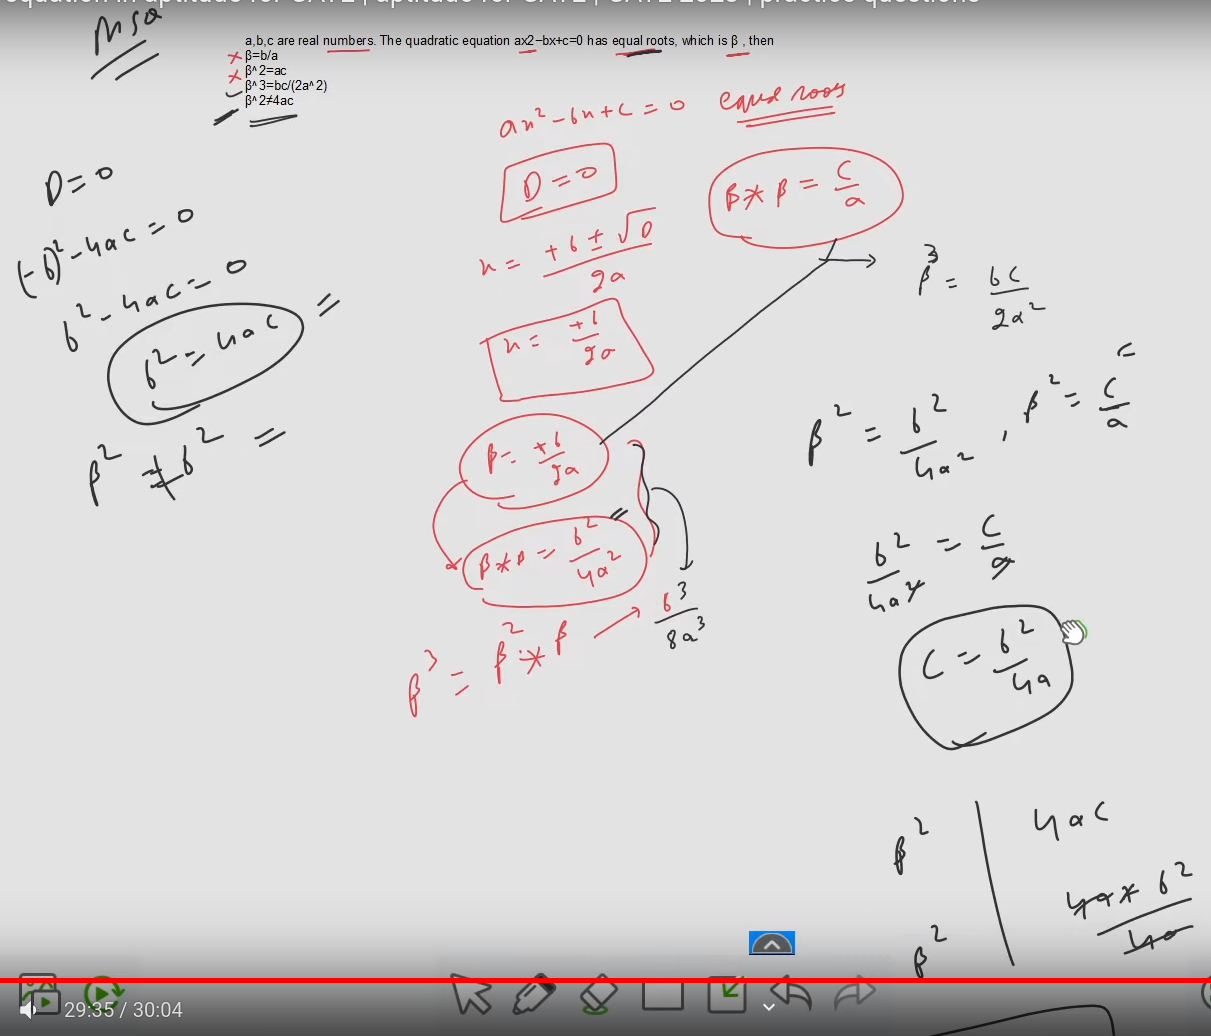 equation in aptitude for GATE | aptitude for GATE | GATE 2025 | practice questions
MSQ
a,b,c are real numbers. The quadratic equation ax2−bx+c=0 has equal roots, which is β , then
β=b/a
β^2=ac
β^3=bc/(2a^2)
β^2≠4ac
ax² - bx + c = 0 equal roots
D = 0
x = +b ± √0 / 2a
x = +b / 2a
β = +b / 2a
β * β = b² / 4a²
β³ = β² * β
b³ / 8a³
D = 0
(-b)² - 4ac = 0
b² - 4ac = 0
b² = 4ac
β² ≠ b²
β * β = c / a
β³ = bc / 2a²
β² = b² / 4a² , β² = c / a
b² / 4a² = c / a
c = b² / 4a
β² | 4ac
β² | 4a * b² / 4a
29:35 / 30:04